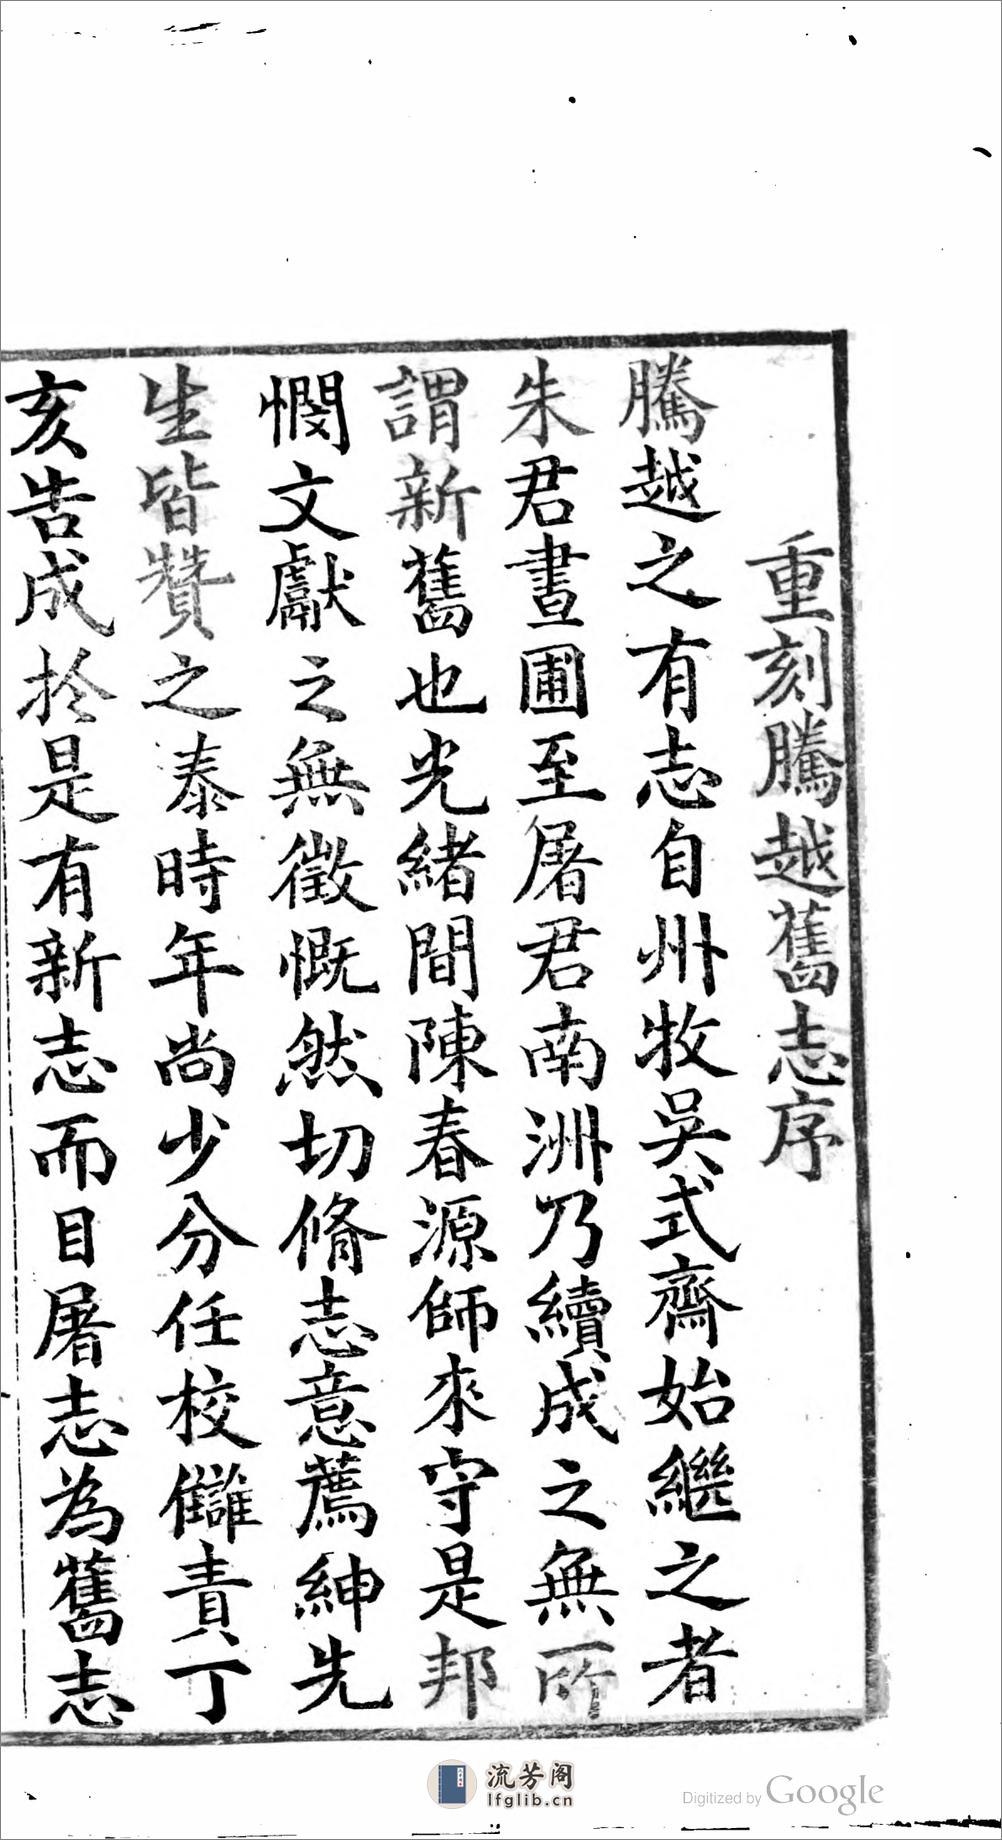 重刻騰越舊志序
騰越之有志自州牧吳式齋始繼之者
朱君晝圃至屠君南洲乃續成之無所
謂新舊也光緒間陳春源師來守是邦
憫文獻之無徵慨然切脩志意薦紳先
生皆贊之泰時年尚少分任校讎責丁
亥告成於是有新志而目屠志為舊志
流芳阁
lfglib.cn
Digitized by Google